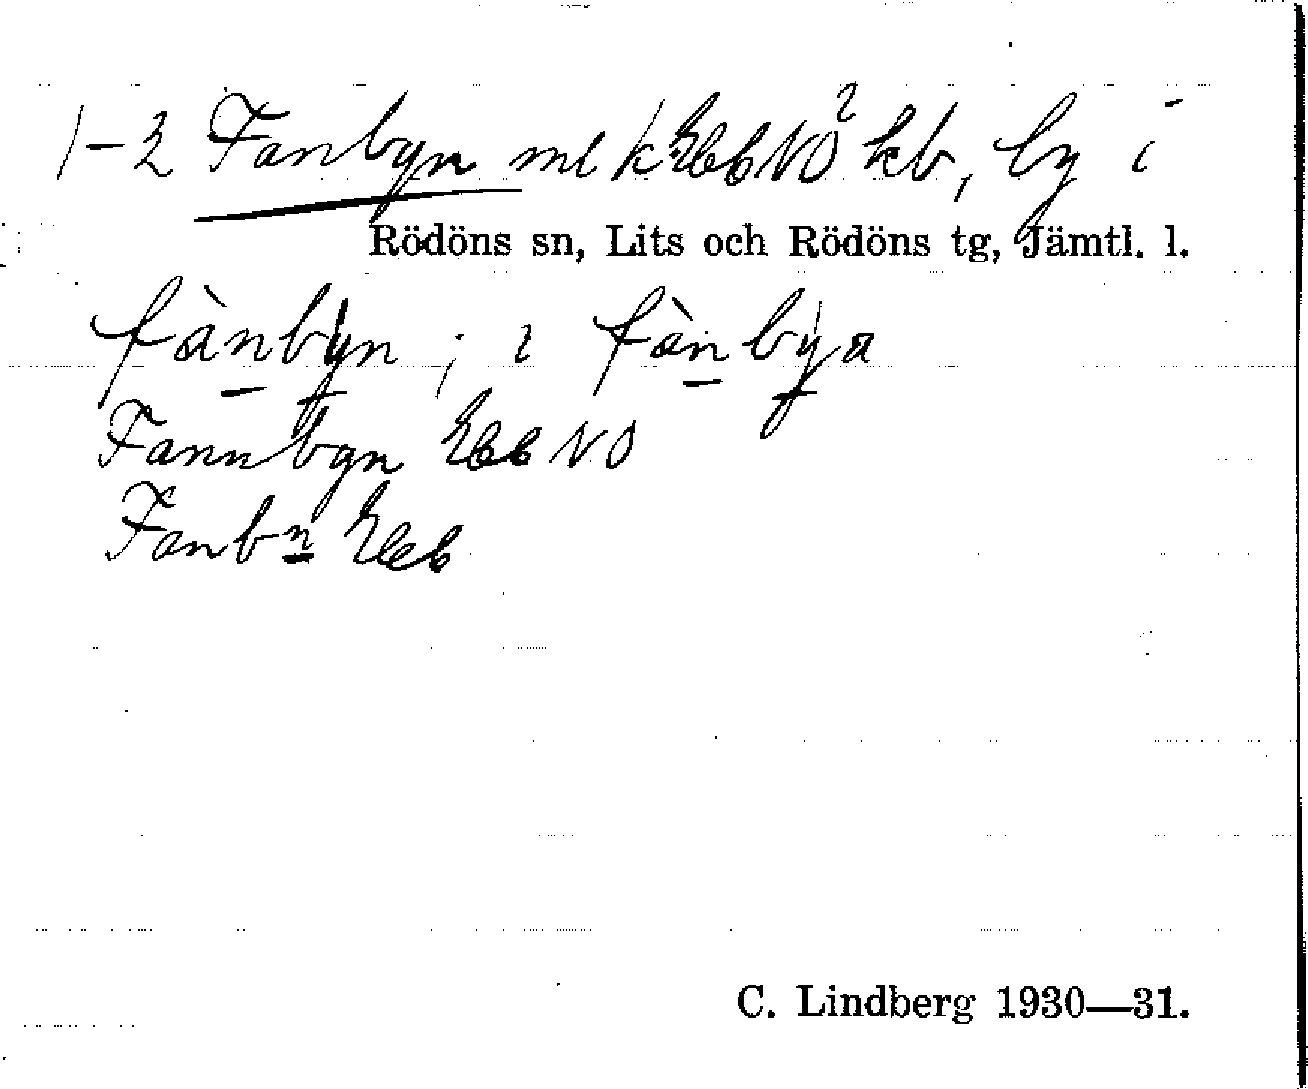 1–2 Fanbyn ml k NO² kb, by i
Rödöns sn, Lits och Rödöns tg, Jämtl. l.
fànbyn ; i fànbya
Fannbyn NO
Fanbn
C. Lindberg 1930—31.